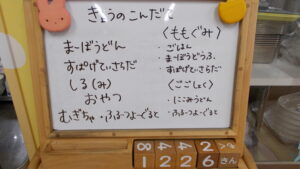 きょうのこんだて
まーぼうどん
すぱげてぃさらだ
しる(み)
おやつ
むぎちゃ・ふるーつよーぐると
〈ももぐみ〉
・ごはん
・まーぼうどうふ
・すぱげてぃさらだ
〈ごごしょく〉
・にこみうどん
・ふるーつよーぐると
8 4 4 2
1 2 2 6 さん